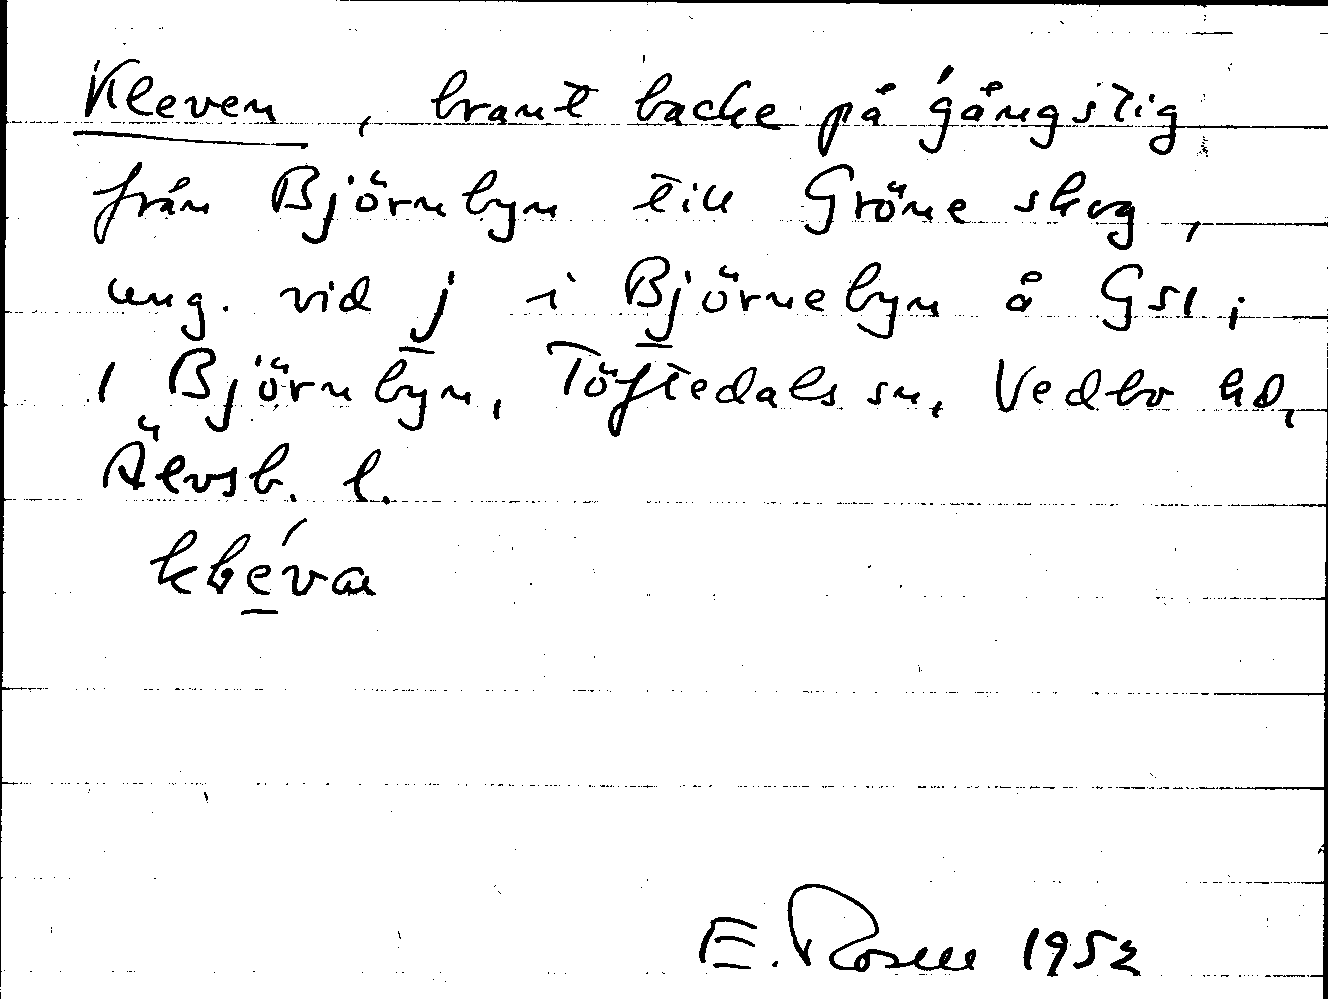 Kleven, brant backe på gångstig
från Björnbyn till Gröne skog,
ung. vid j i Björnebyn å GSI;
1 Björnbyn, Töftedals sn, Vedbo hd,
Älvsb. l.
kléva
E. Rosell 1952